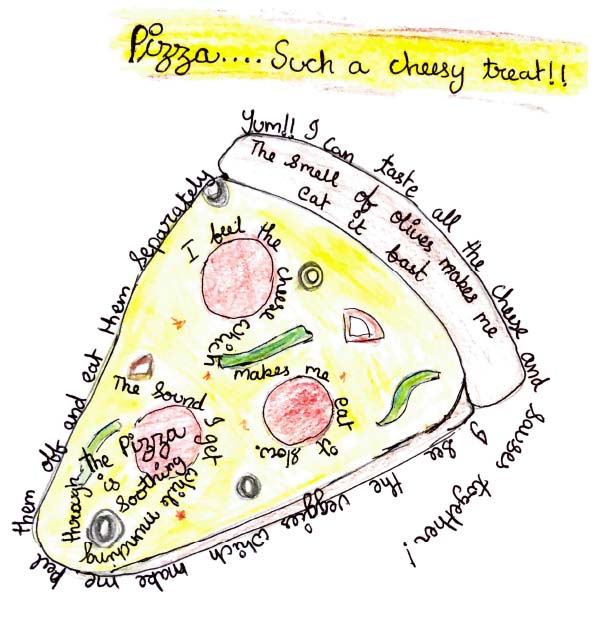 Pizza.... Such a cheesy treat!!
Yum!! I can taste all the cheese and sauses together!
The smell of olives makes me
eat it fast
I feel the cheese which makes me eat it slow.
The sound I get while munching
through the Pizza
is soothing
I see the veggies which make me peel them off and eat them separately